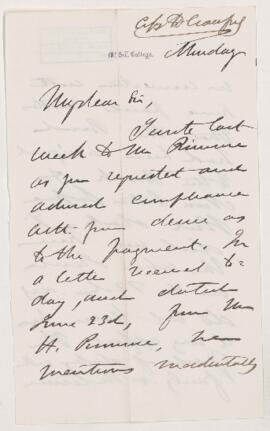 Monday
My dear Sir,
I wrote last
week to Mr Rimmer
as you requested and
advised compliance
with your desire as
to the payment. In
a letter received to-
day, and dated
June 23d, from Mr
H. Rimmer, he
mentions incidentally